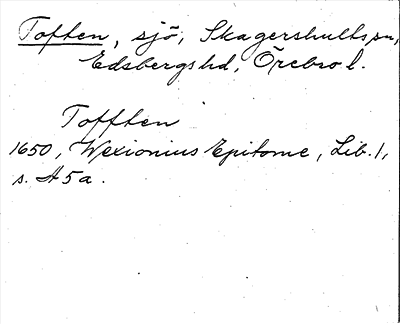 Toften, sjö, Skagershults sn,
Edsbergs hd, Örebro l.
Tofften
1650, Wexionius Epitome, Lib. 1,
s. A5a.